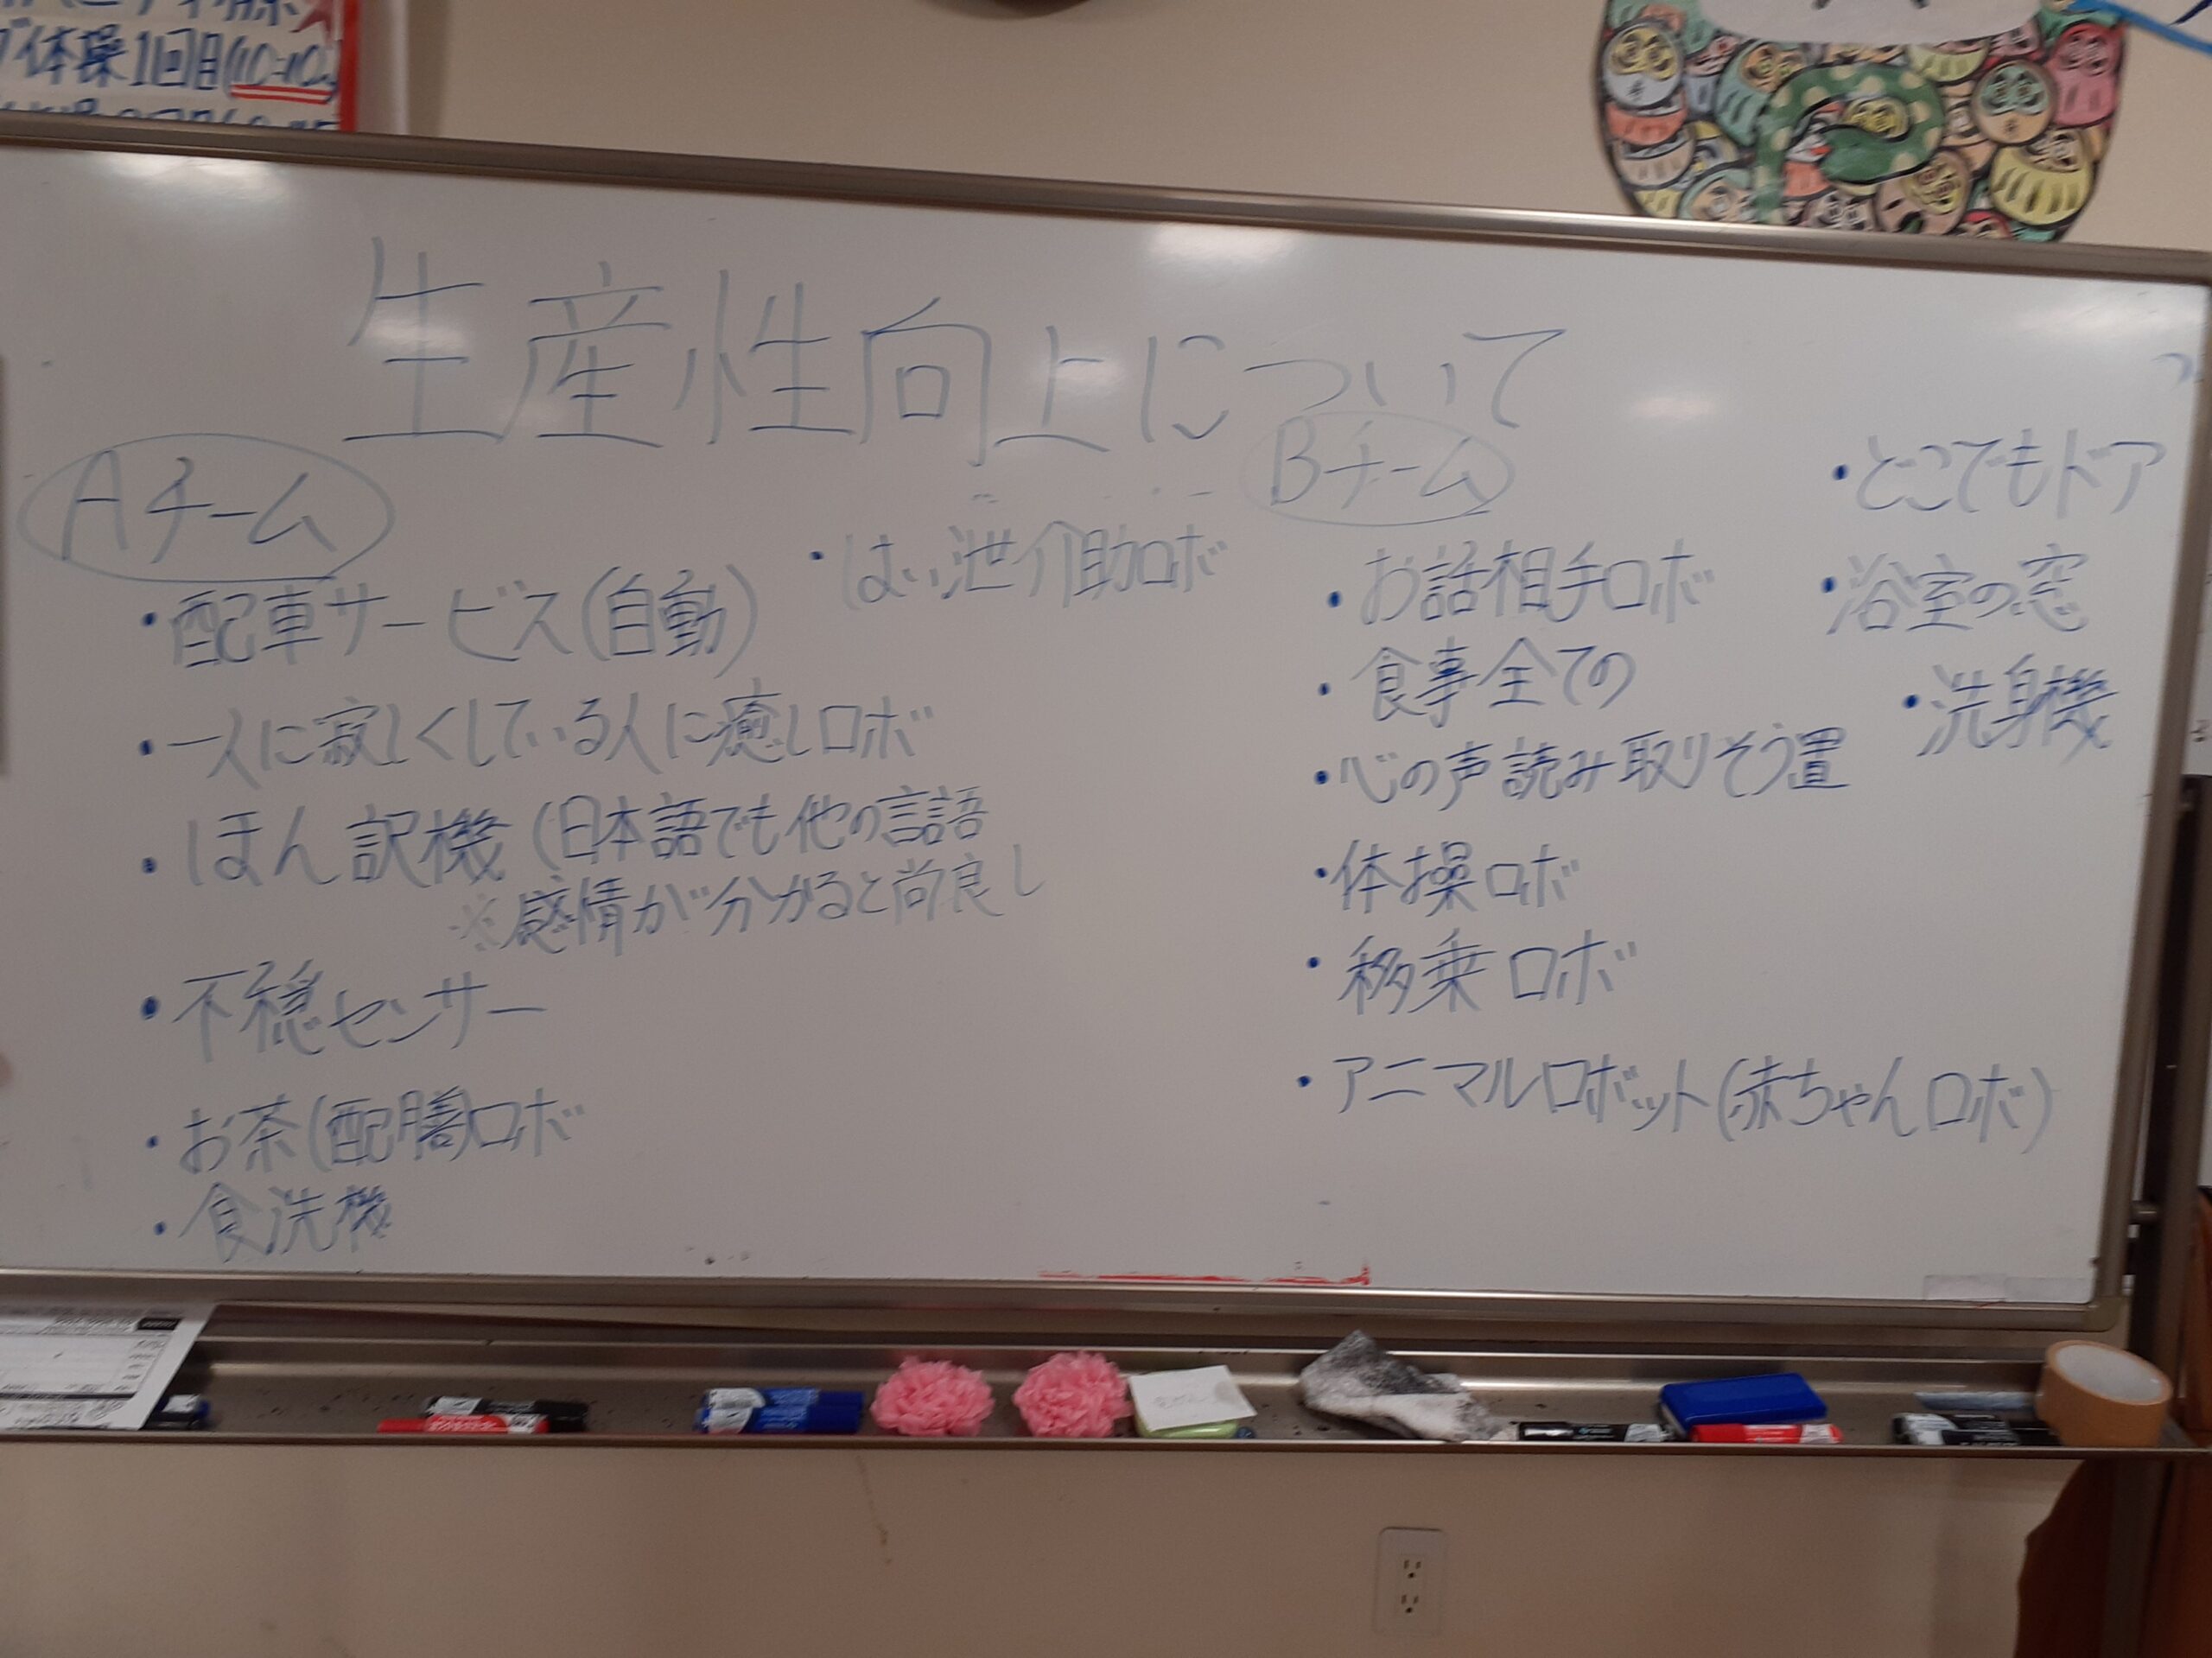 体操1回目(10:10
生産性向上について
Aチーム
・配車サービス(自動)
・一人に寂しくしている人に癒しロボ
・ほん訳機(日本語でも他の言語
※感情が分かると尚良し
・不穏センサー
・お茶(配膳)ロボ
・食洗機
・はいい泄介助ロボ
Bチーム
・お話相手ロボ
・食事全ての
・心の声読み取りそう置
・体操ロボ
・移乗ロボ
・アニマルロボット(赤ちゃんロボ)
・どこでもドア
・浴室の窓
・洗身機